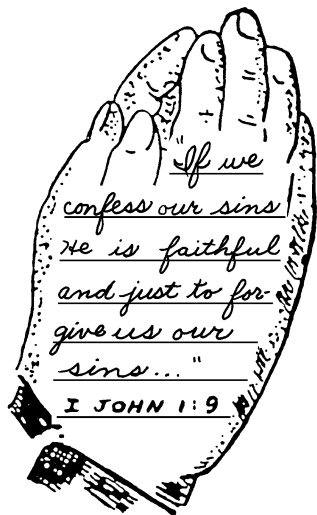 "If we
confess our sins
He is faithful
and just to for-
give us our
sins..."
I JOHN 1:9